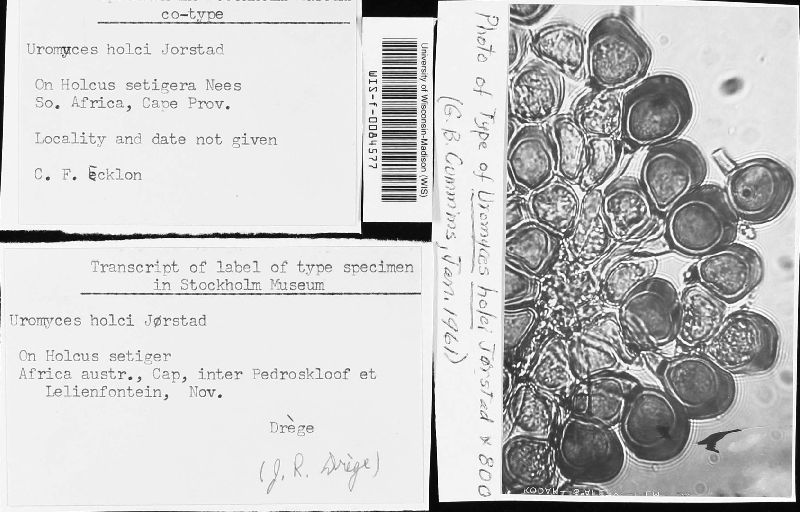 co-type
Uromyces holci Jorstad
On Holcus setigera Nees
So. Africa, Cape Prov.
Locality and date not given
C. F. Ecklon
University of Wisconsin-Madison (WIS)
WIS-f-0084577
Transcript of label of type specimen
in Stockholm Museum
Uromyces holci Jørstad
On Holcus setiger
Africa austr., Cap, inter Pedroskloof et
Lelienfontein, Nov.
Drège
(J. R. Drège)
Photo of Type of Uromyces holci Jørstad x 800
(G. B. Cummins, Jan. 1961)